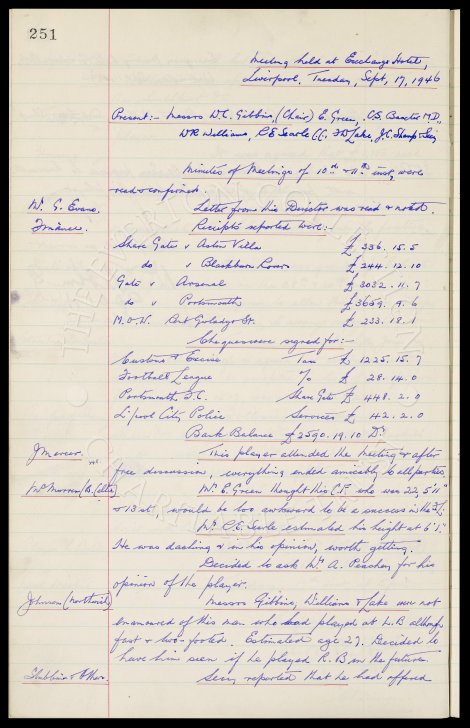 251
Meeting held at Exchange Hotel,
Liverpool, Tuesday, Sept, 17, 1946
Present:- Messrs W.C. Gibbins, (Chair) E. Green, C.S. Baxter M.D.,
W.R. Williams, R.E. Searle CC, F.W. Lake, J.C. Sharp & Secy
Minutes of Meetings of 10th & 11th inst, were
read & confirmed.
Mr. G. Evans. Letter from this Director was read & noted.
Finances. Receipts reported were:-
Share Gate v Aston Villa £ 336. 15. 5
do v Blackburn Rovers £ 244. 12. 10
Gate v Arsenal £ 3032. 11. 7
do v Portsmouth £ 3659. 9. 6
M.O.W. Rent Gwladys St. £ 233. 18. 1
Cheques were signed for:-
Customs & Excise Tax £ 1225. 15. 7
Football League % £ 28. 14. 0
Portsmouth F.C. Share Gate £ 448. 2. 0
L'pool City Police Services £ 42. 2. 0
Bank Balance £2590. 19. 10 Dr
J Mercer. This player attended the Meeting & after
free discussion, everything ended amicably to all parties.
(B. Celtic) Mr. E. Green thought this C.F. who was 22, 5'11"
& 13 st. would be too awkward to be a success in the
Mr. R.E. Searle estimated his height at 6'1".
He was dashing & in his opinion, worth getting.
Decided to ask Mr. A. Peachey for his
opinion of the player.
Johnson (Northwich) Messrs Gibbins, Williams & Lake were not
enamoured of this man who had played at L.B although
fast & two-footed. Estimated age 27. Decided to
have him seen if he played R.B in the future.
Stubbins & other. Secy reported that he had offered